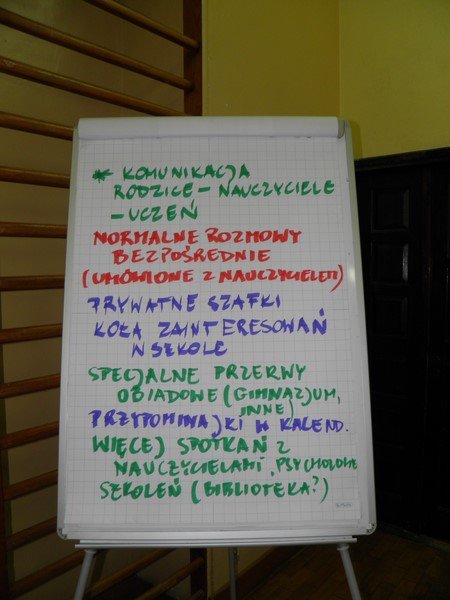 * KOMUNIKACJA
RODZICE – NAUCZYCIELE
– UCZEŃ
NORMALNE ROZMOWY
BEZPOŚREDNIE
(UMÓWIONE Z NAUCZYCIELEM)
PRYWATNE SZAFKI
KOŁA ZAINTERESOWAŃ
W SZKOLE
SPECJALNE PRZERWY
OBIADOWE (GIMNAZJUM,
INNE)
PRZYPOMINAJKI W KALEND.
WIĘCEJ SPOTKAŃ Z
NAUCZYCIELAMI, PSYCHOLOGIEM
SZKOLEŃ (BIBLIOTEKA?)